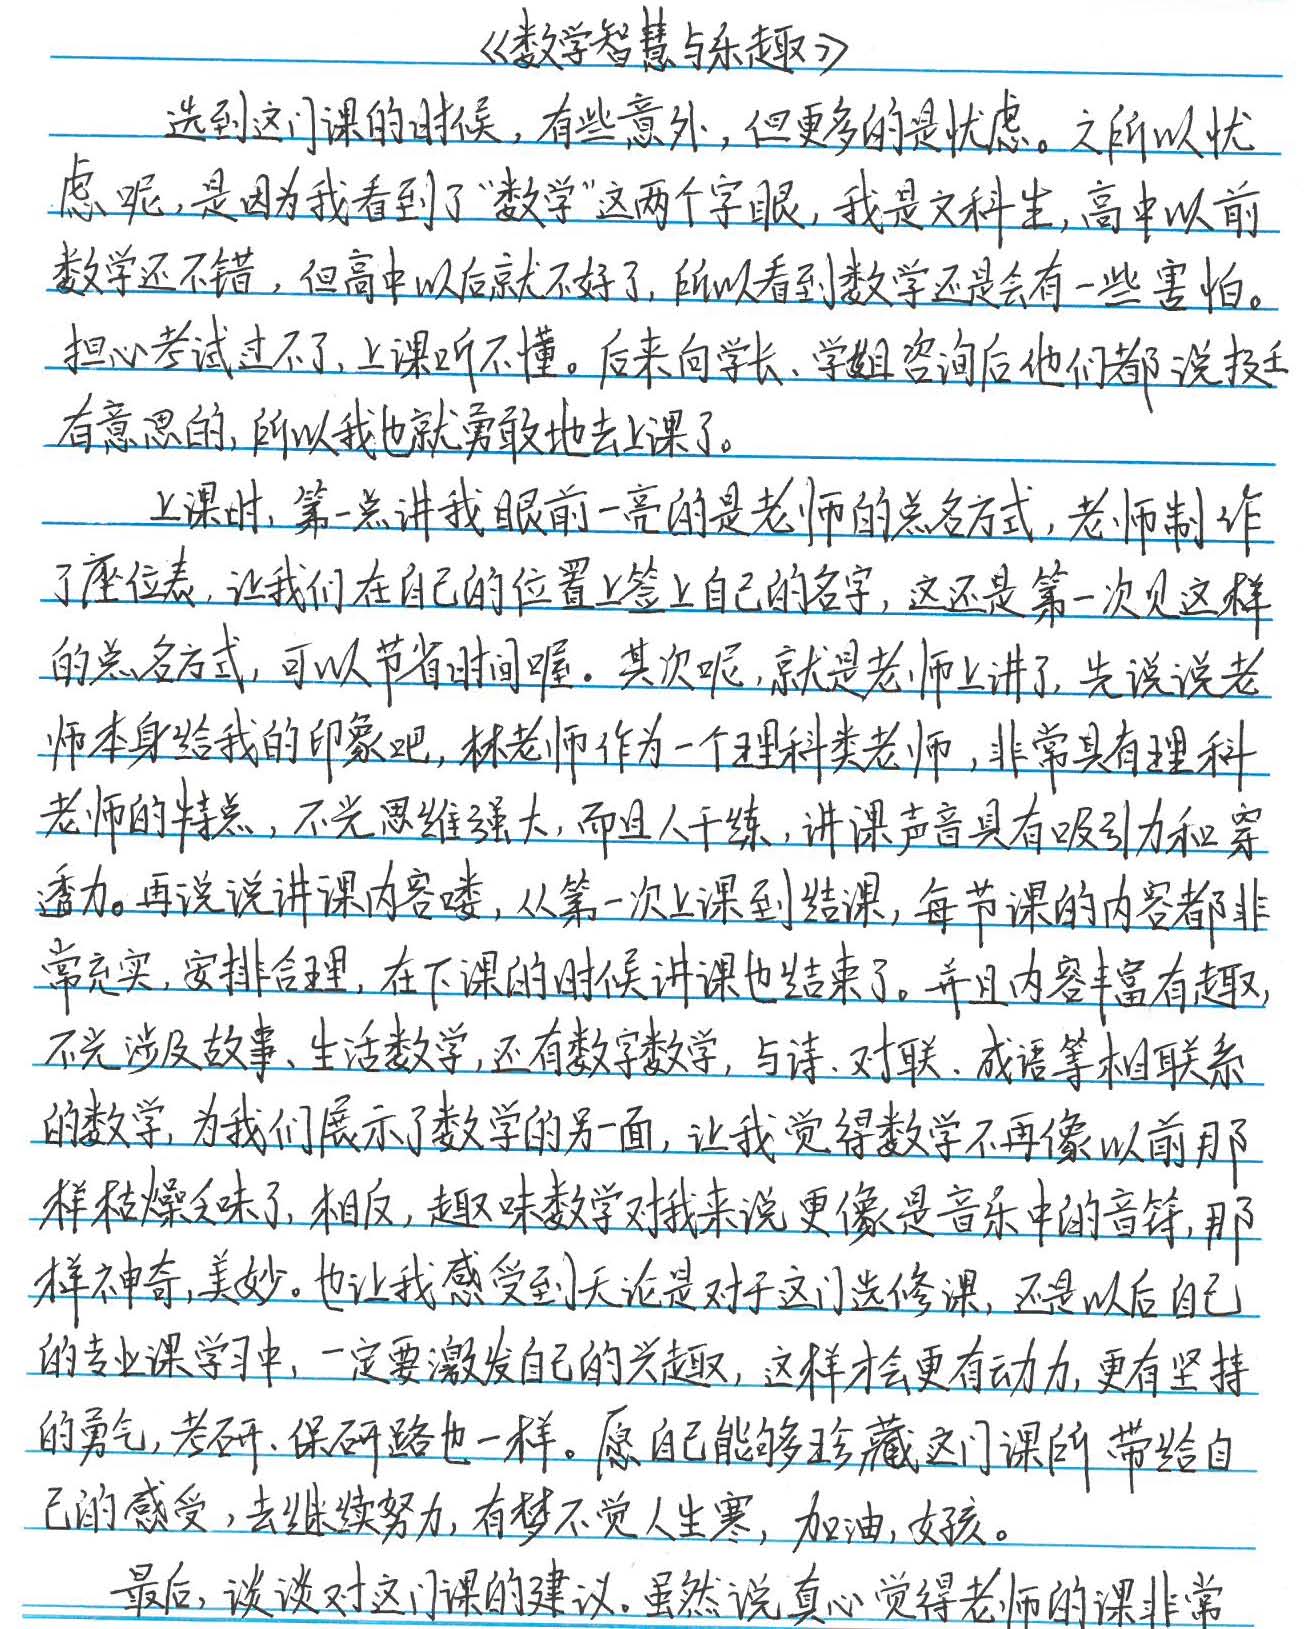 《数学智慧与乐趣》
选到这门课的时候，有些意外，但更多的是忧虑。之所以忧
虑呢，是因为我看到了“数学”这两个字眼，我是文科生，高中以前
数学还不错，但高中以后就不好了，所以看到数学还是会有一些害怕。
担心考试过不了，上课听不懂。后来向学长、学姐咨询后他们都说挺
有意思的，所以我也就勇敢地去上课了。
上课时，第一点讲我眼前一亮的是老师的点名方式，老师制作
了座位表，让我们在自己的位置上签上自己的名字，这还是第一次见这样
的点名方式，可以节省时间喔。其次呢，就是老师上讲了，先说说老
师本身给我的印象吧，林老师作为一个理科类老师，非常具有理科
老师的特点，不光思维强大，而且人干练，讲课声音具有吸引力和穿
透力。再说说讲课内容喽，从第一次上课到结课，每节课的内容都非
常充实，安排合理，在下课的时候讲课也结束了。并且内容丰富有趣，
不光涉及故事、生活数学，还有数字数学，与诗、对联、成语等相联系
的数学，为我们展示了数学的另一面，让我觉得数学不再像以前那
样枯燥乏味了，相反，趣味数学对我来说更像是音乐中的音符，那
样神奇，美妙。也让我感受到无论是对于这门选修课，还是以后自己
的专业课学习中，一定要激发自己的兴趣，这样才会更有动力，更有坚持
的勇气，考研、保研路也一样。愿自己能够珍藏这门课所带给自
己的感受，去继续努力，有梦不觉人生寒，加油，女孩。
最后，谈谈对这门课的建议。虽然说真心觉得老师的课非常